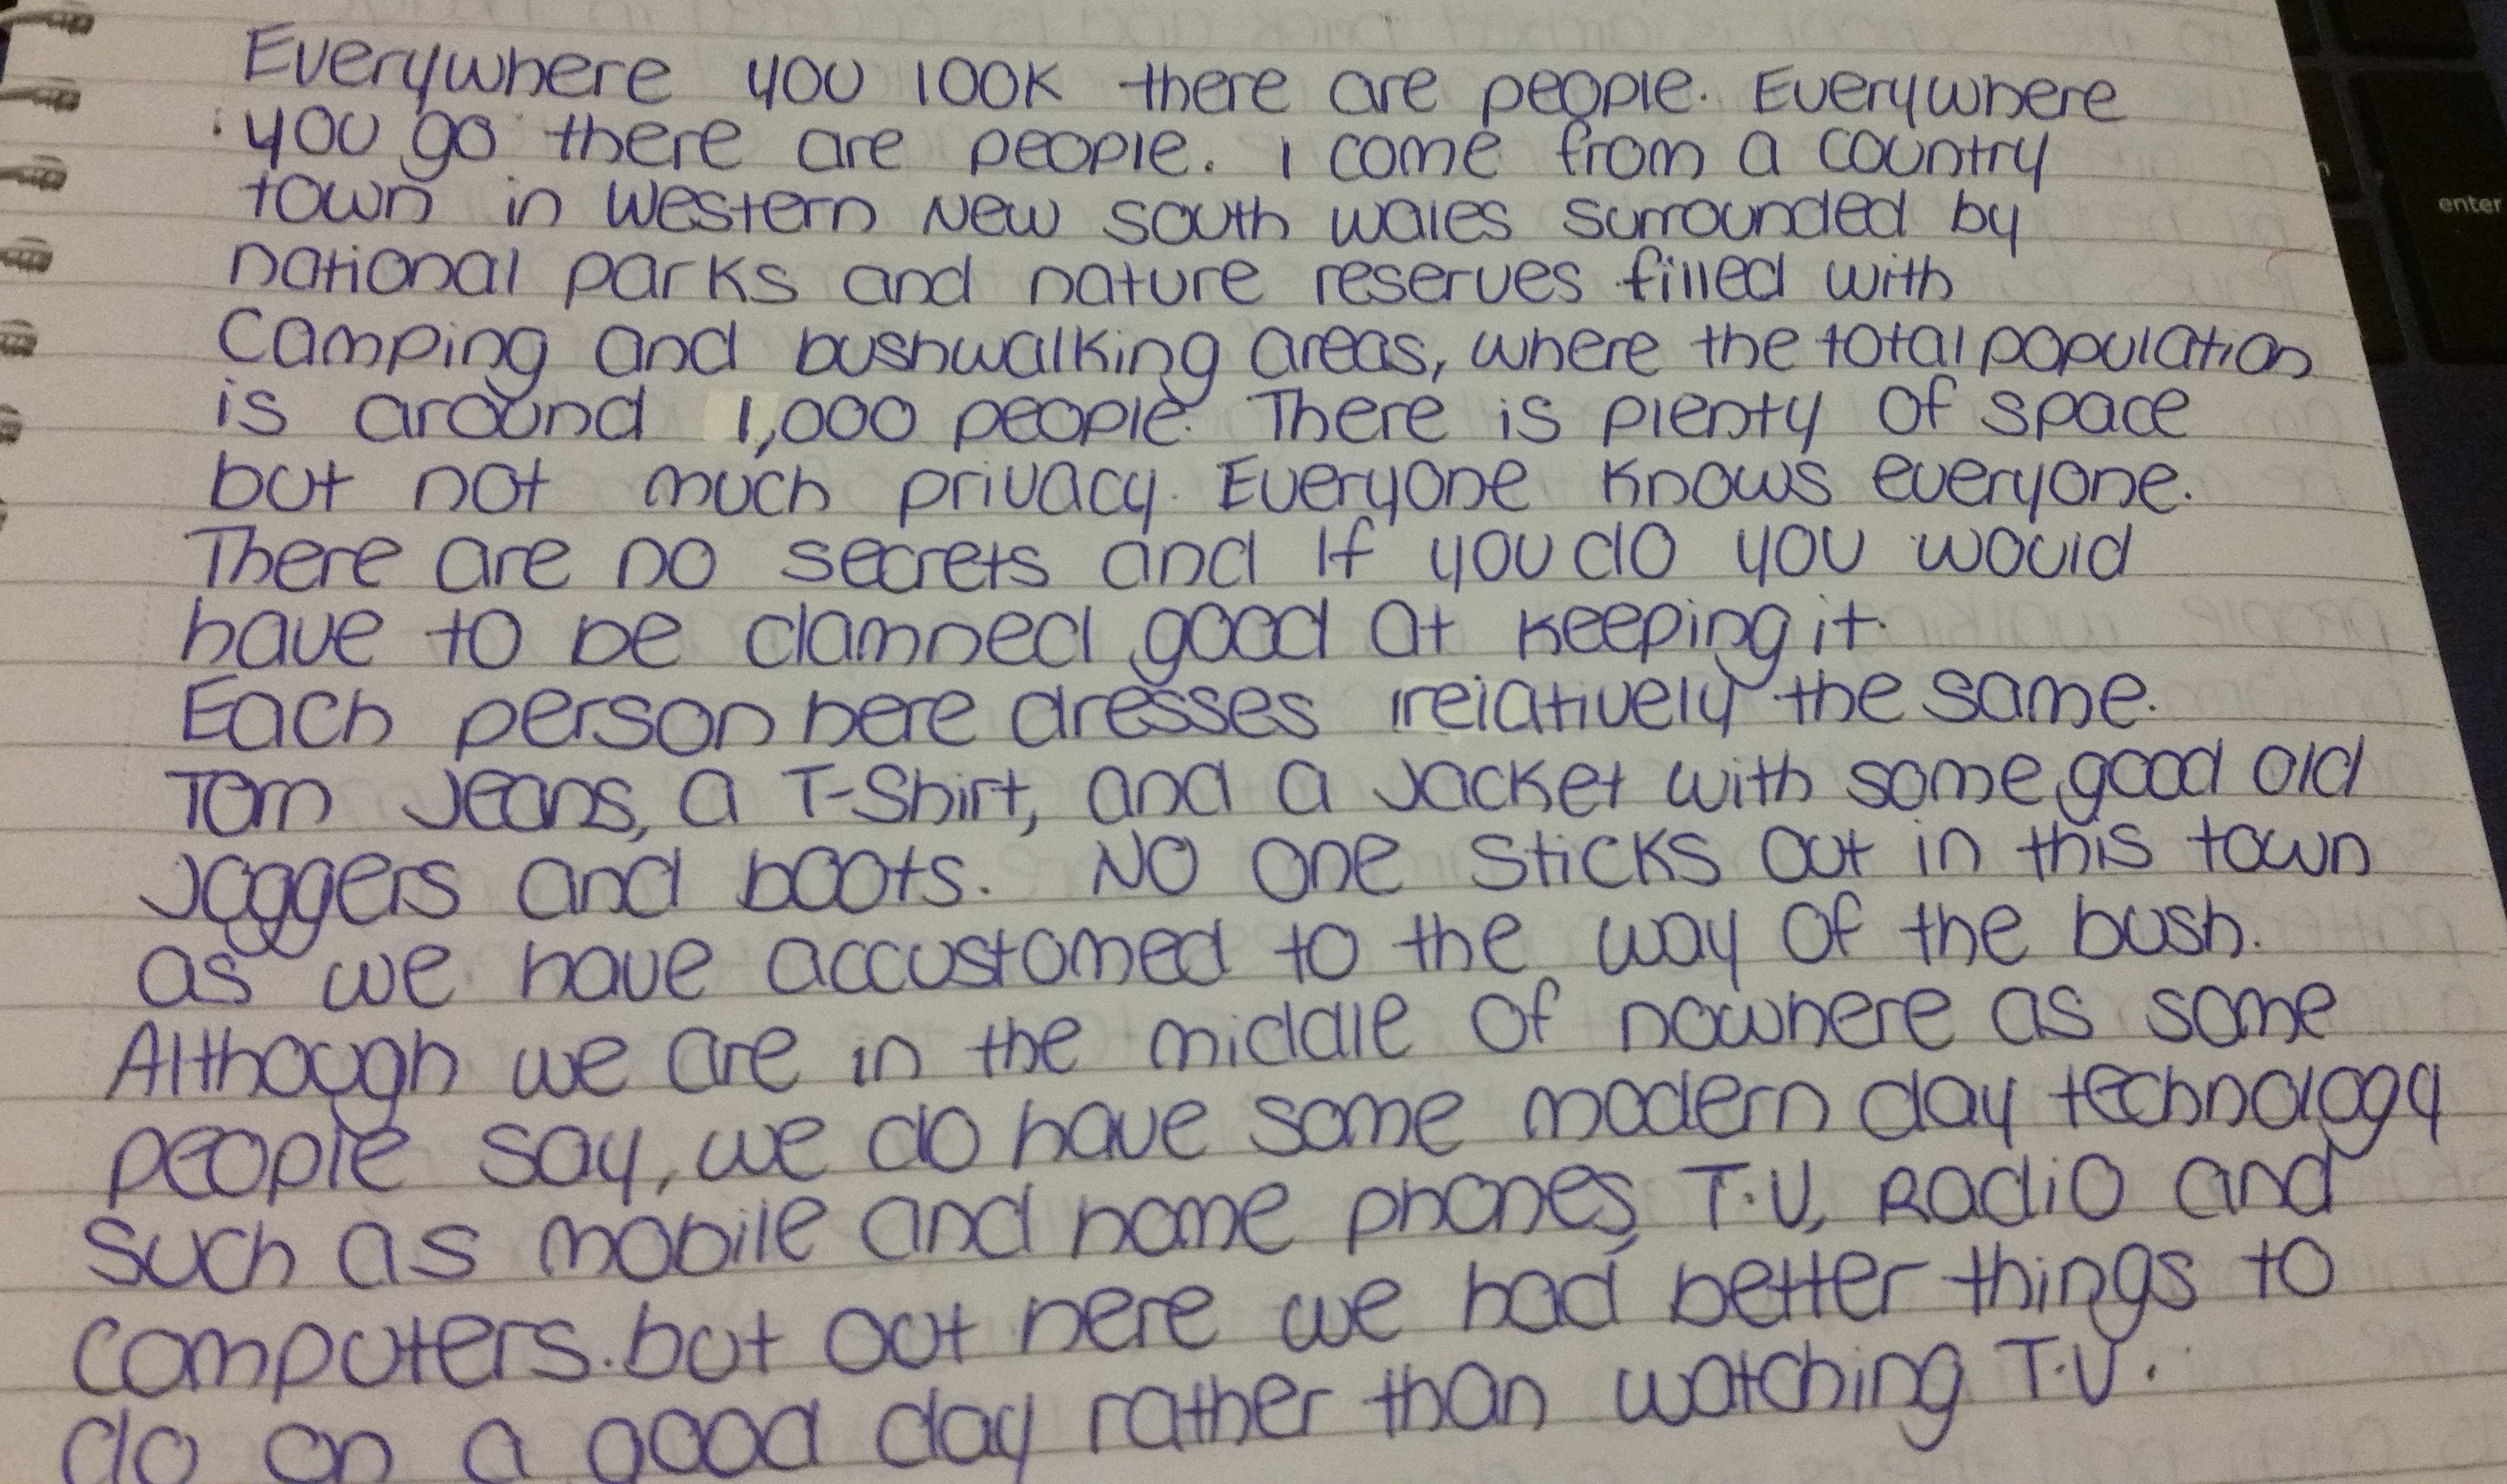 Everywhere you look there are people. Everywhere
you go there are people. I come from a country
town in Western New South Wales surrounded by
national parks and nature reserves filled with
Camping and bushwalking areas, where the total population
is around 1,000 people. There is plenty of space
but not much privacy. Everyone knows everyone.
There are no secrets and if you do you would
have to be damned good at keeping it.
Each person here dresses relatively the same.
Torn Jeans, a T-Shirt, and a Jacket with some good old
Joggers and boots. No one sticks out in this town
as we have accustomed to the way of the bush.
Although we are in the middle of nowhere as some
people say, we do have some modern day technology
such as mobile and home phones, T.V, Radio and
computers. but out here we had better things to
do on a good day rather than watching T.V.
enter